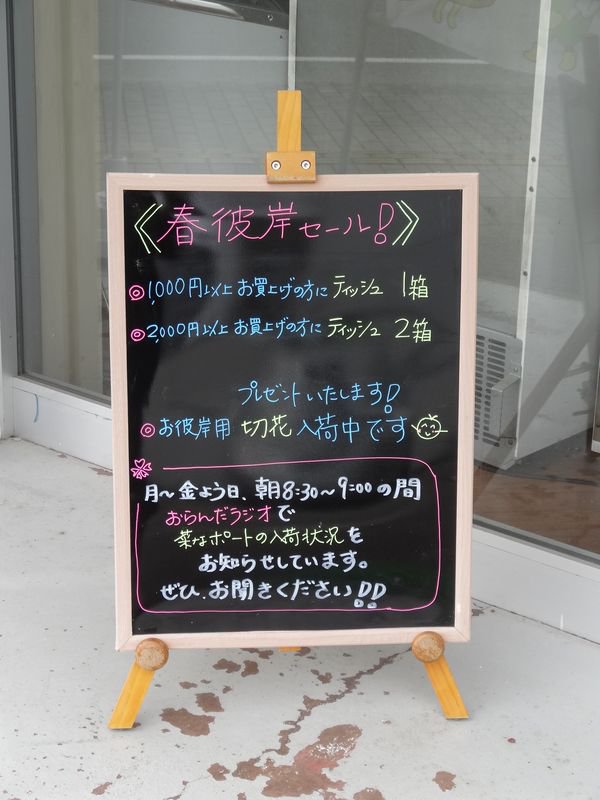 《春彼岸セール!》
◎1,000円以上お買上げの方にティッシュ 1箱
◎2,000円以上お買上げの方にティッシュ 2箱
プレゼントいたします!
◎お彼岸用 切花 入荷中です
月〜金よう日、朝8:30〜9:00の間
おらんだラジオで
菜なポートの入荷状況を
お知らせしています。
ぜひ、お聞きください!!